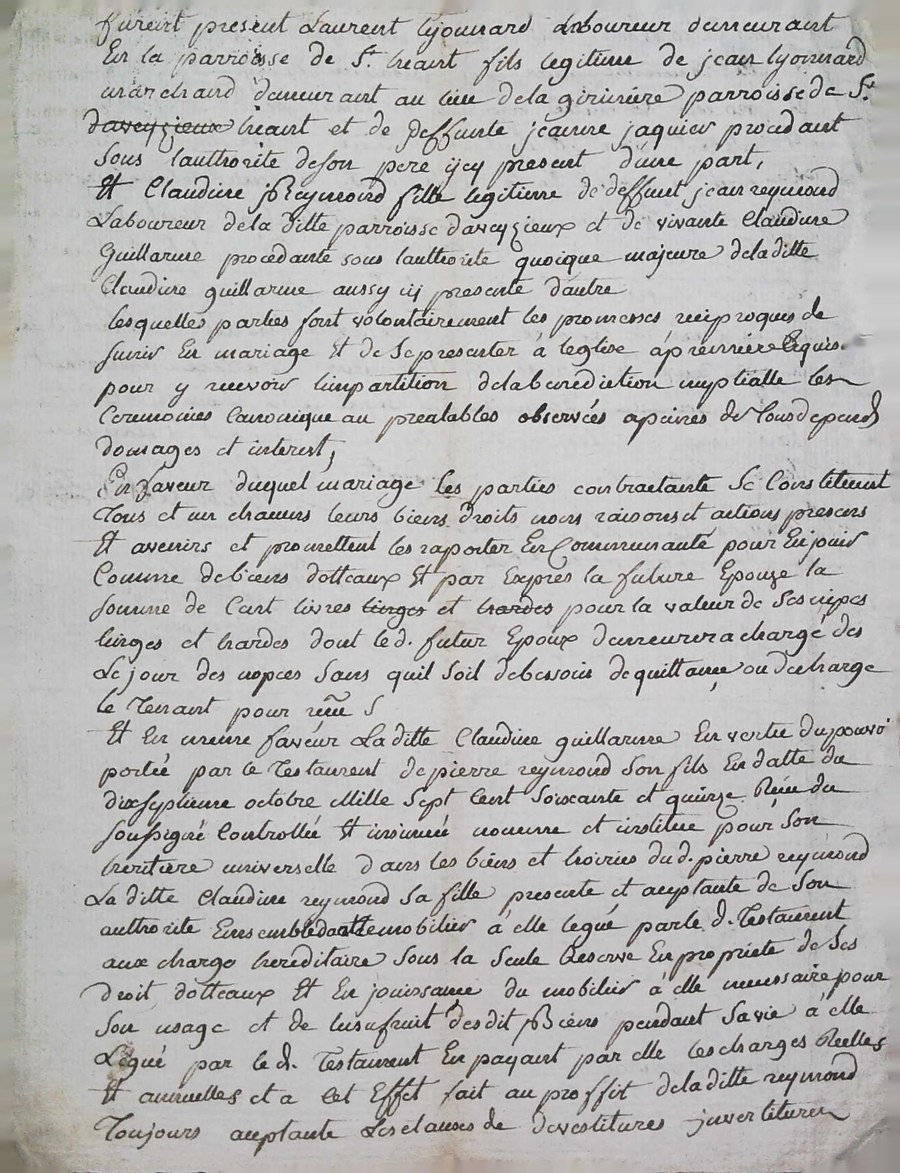 furent present Laurent Lyonnard Laboureur demeurant
En la parroisse de St. heant fils legitime de jean lyonnard
marchand demeurant au lieu dela giriniere parroisse de St.
daveyzieux heant et de deffunte jeanne jaquier procedant
Sous lauthorité deson pere ycy present d'une part,
Et Claudine Reymond fille legitime de deffunt jean reymond
Laboureur dela ditte parroisse daveyzieux et de vivante Claudine
Guillarme procedante sous lauthorité quoique majeure dela ditte
Claudine guillarme aussy icy presente d'autre
lesquelles parties font volontairement les promesses reciproques de
sunir En mariage Et de Se presenter à léglise à premiere Requis.
pour y recevoir limpartition dela benediction nuptialle les
Ceremonies Canonique au prealables observées apeines de tous depends
domages et interest,
En faveur duquel mariage les parties contractante Se Constituent
Tous et un chacuns leurs biens droits noms raisons et actions presens
Et avenirs et promettent les raporter En Communauté pour En jouir
Comme de biens dotteaux Et par Exprès la future Epouze la
somme de Cent livres linges et hardes pour la valeur de Ses nipes
linges et hardes dont le d. futur Epoux demeurera chargé dès
Le jour des nopces Sans quil Soit debessoin de quittance ou decharge
le Tenant pour
Et En meme faveur La ditte Claudine guillarme En vertu du pouvoir
portée par le Testament de pierre reymond Son fils En datte du
dixseptieme octobre Mille Sept Cent Soixante et quinze Réçu du
soussigné Controllée Et insinuée nomme et institue pour Son
heritiere universelle dans les biens et hoiries du d. pierre reymond
La ditte Claudine reymond Sa fille presente et aceptante de Son
authorité Ensemble mobilier à elle legué par le d. Testament
aux charge hereditaire Sous la Seule Reserve En propriete de Ses
Droit dotteaux Et En jouissance du mobilier à elle necessaire pour
Son usage et de lusufruit desdit Biens pendant Sa vie à elle
Légué par le d. Testament En payant par elle les charges Réelles
Et annuelles et a Cet Effet fait au proffit dela ditte reymond
Toujours aceptante Les clauses de devestitures investitures